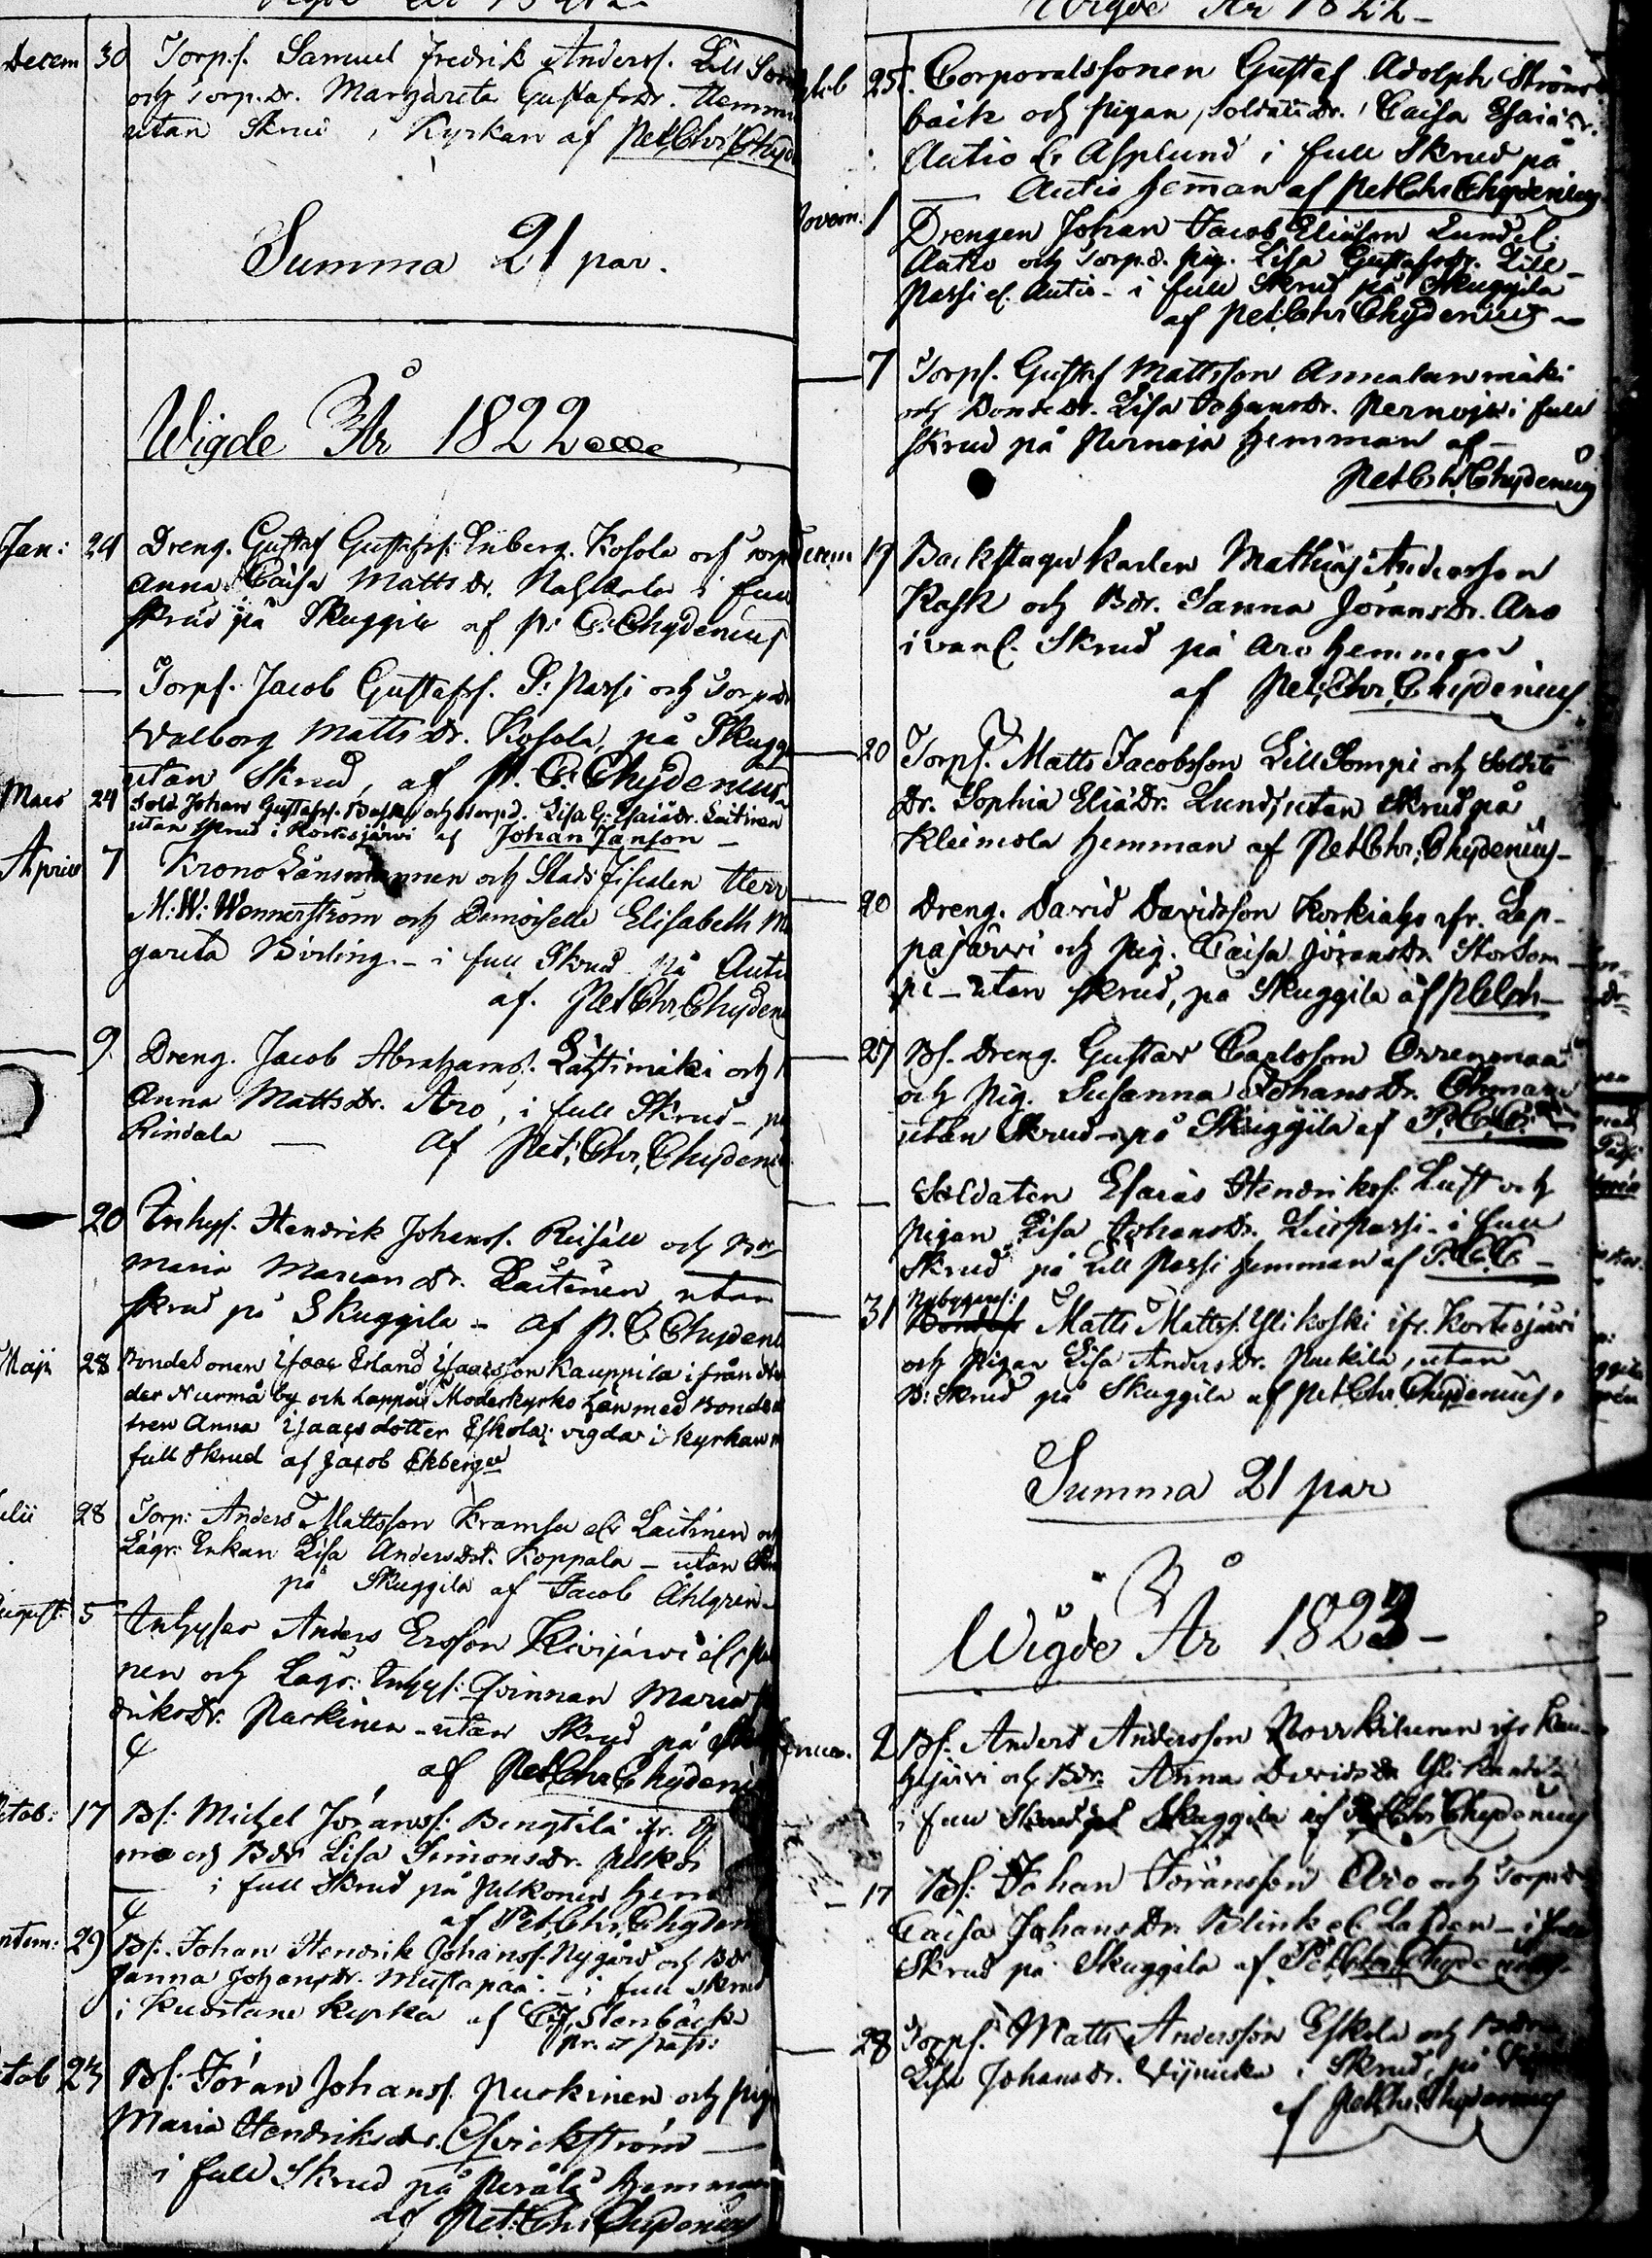 Decem 30 Torp.s. Samuel Fredrik Anderss. Lill Som
och Torp.dr. Margareta Gustafsdr. Hemm
utan Skrud i Kyrkan af Pet. Chr. Chyd
Summa 21 par.
Wigde År 1822
Jan: 24 Dreng. Gustaf Gustafss. Enberg. Kosola och Torp
Anna Caisa Mattsdr. i full
skrud på Skuggila af P. C. Chydenius
— — Torps. Jacob Gustafss. L: Passi och Torpdr
Walborg Mattsdr. Kosola, på Skugg
utan Skrud, af P. C. Chydenius
Mars 24 Sold. Johan Gustafss. och Torpd. Lisa G: Esaiædr. Laitinen
utan skrud i Kortesjärvi af Johan Janson —
April 7 Krono Länsmannen och Stads Fiscalen Herr
M: W: Wennerström och Demoiselle Elisabeth Ma
gareta Birling. — i full Skrud på Auti
af. Pet Chr. Chyden
— 9. Dreng. Jacob Abrahams. Lahtimäki och
Anna Mattsdr. Aro, i full Skrud — på
Rindala — af Pet: Chr. Chydeni
— 20 Inhys. Hendrik Johanss. Reisäll och Bdr
Maria Mariandr. Laitinen utan
skrud på Skuggila — af P. C Chydeni
Maji 28 Bondesonen Isaac Erland Isaacsson Kauppila ifrån
der Nurmå by och Lappå Moderkyrko Län med Bonded
tren Anna Isaacs dotter Eskola; vigda i kyrkan
full skrud af Jacob Ekberg
ulii 28 Torp: Anders Mattsson Kramsu el Laitinen och
Lägr: Enkan Lisa Andersdr. Koppala — utan Skr
på Skuggila af Jacob Ahlgren —
August: 5 Inhyses Anders Ersson Kivijärvi el
nen och Lägr: Inhys: Qvinnan Maria
driksdr. Parkinen — utan Skrud på
af Pet Chr Chydeni
17 Bs: Michel Jöranss: Bengtilä ifr.
ma och Bdr Lisa Simonsdr.
i full Skrud på Pulkonen hem
af Pet. Chr. Chyden
ptem: 29 Bs. Johan Hendrik Johanss. Nygård och Bdr
Sanna Johansdr. Mustapaa. — i full skrud
i Kuortane kyrka af C. J. Stenbäck
ctob Bs: Jöran Johanss. Puskinen och pig
Maria Hendriksdr. Qvickström —
i full Skrud på Perälä hemman
af Pet: Chr Chydenius
Wigde År 1822 —
ctob 25. Corporalssonen Gustaf Adolph Ström
bäck och pigan, Soldatsdr. Caisa Esaiædr.
Autio el. Asplund i full Skrud på
— Autio heman af Pet Chr Chydenius
Novem. 1 Drengen Johan Jacob Eliæson Lund el.
Autio och Torp.d. pig. Lisa Gustafsdr. Lill-
Passi el. Autio — i full Skrud på Skuggila
af Pet: Chr Chydenius —
— 7 Torps. Gustaf Mattsson Annalanmäki
och Bondedr. Lisa Johansdr. Pernoja i full
skrud på Pernoja hemman af —
Pet Chr. Chydenius
Decem 17 Backstugukarlen Mathias Andersson
Rask och Bdr. Sanna Jöransdr. Aro
i vanl. Skrud på Aro hemman
af Pet. Chr. Chydenius
— 20 Torps. Matts Jacobsson Lill Sompi och Soldats
Dr. Sophia Eliædr. Lund, utan Skrud på
Kleimola hemman af Pet Chr. Chydenius —
— 20 Dreng. David Davidsson Korkiaho ifr. Lap-
pajärvi och pig. Caisa Jöransdr. Storsom-
pi — utan skrud, på Skuggila af
— 27 Bs. Dreng. Gustav Carlsson Orrenmaa
och pig. Susanna Johansdr.
utan Skrud — på Skuggila af P. C. C.
— — Soldaten Esaias Hendrikss. Luft och
pigan Lisa Johansdr. Lill Passi — i full
Skrud på Lill Passi hemman af P. C. C —
— 31 Nybyggars: Matts Mattss. Ylikoski ifr. Kortesjärvi
och pigan Lisa Andersdr. Puckila, utan
B: Skrud på Skuggila af Pet Chr. Chydenius.
Summa 21 par
Wigde År 1823 —
2 Bs: Anders Andersson ifr Kau-
hajärvi och Bdr. Anna Davidsdr.
i full Skrud på Skuggila af Pet Chr Chydenius
— 17 Bs: Johan Jöransson Aro och Torpdr
Caisa Johansdr. Blink el. — i full
Skrud på Skuggila af Pet Chr Chydenius
— 28 Torps. Matts Andersson Eskola och Bdr
Lisa Johansdr. i Skrud, på
af Pet Chr. Chydenius